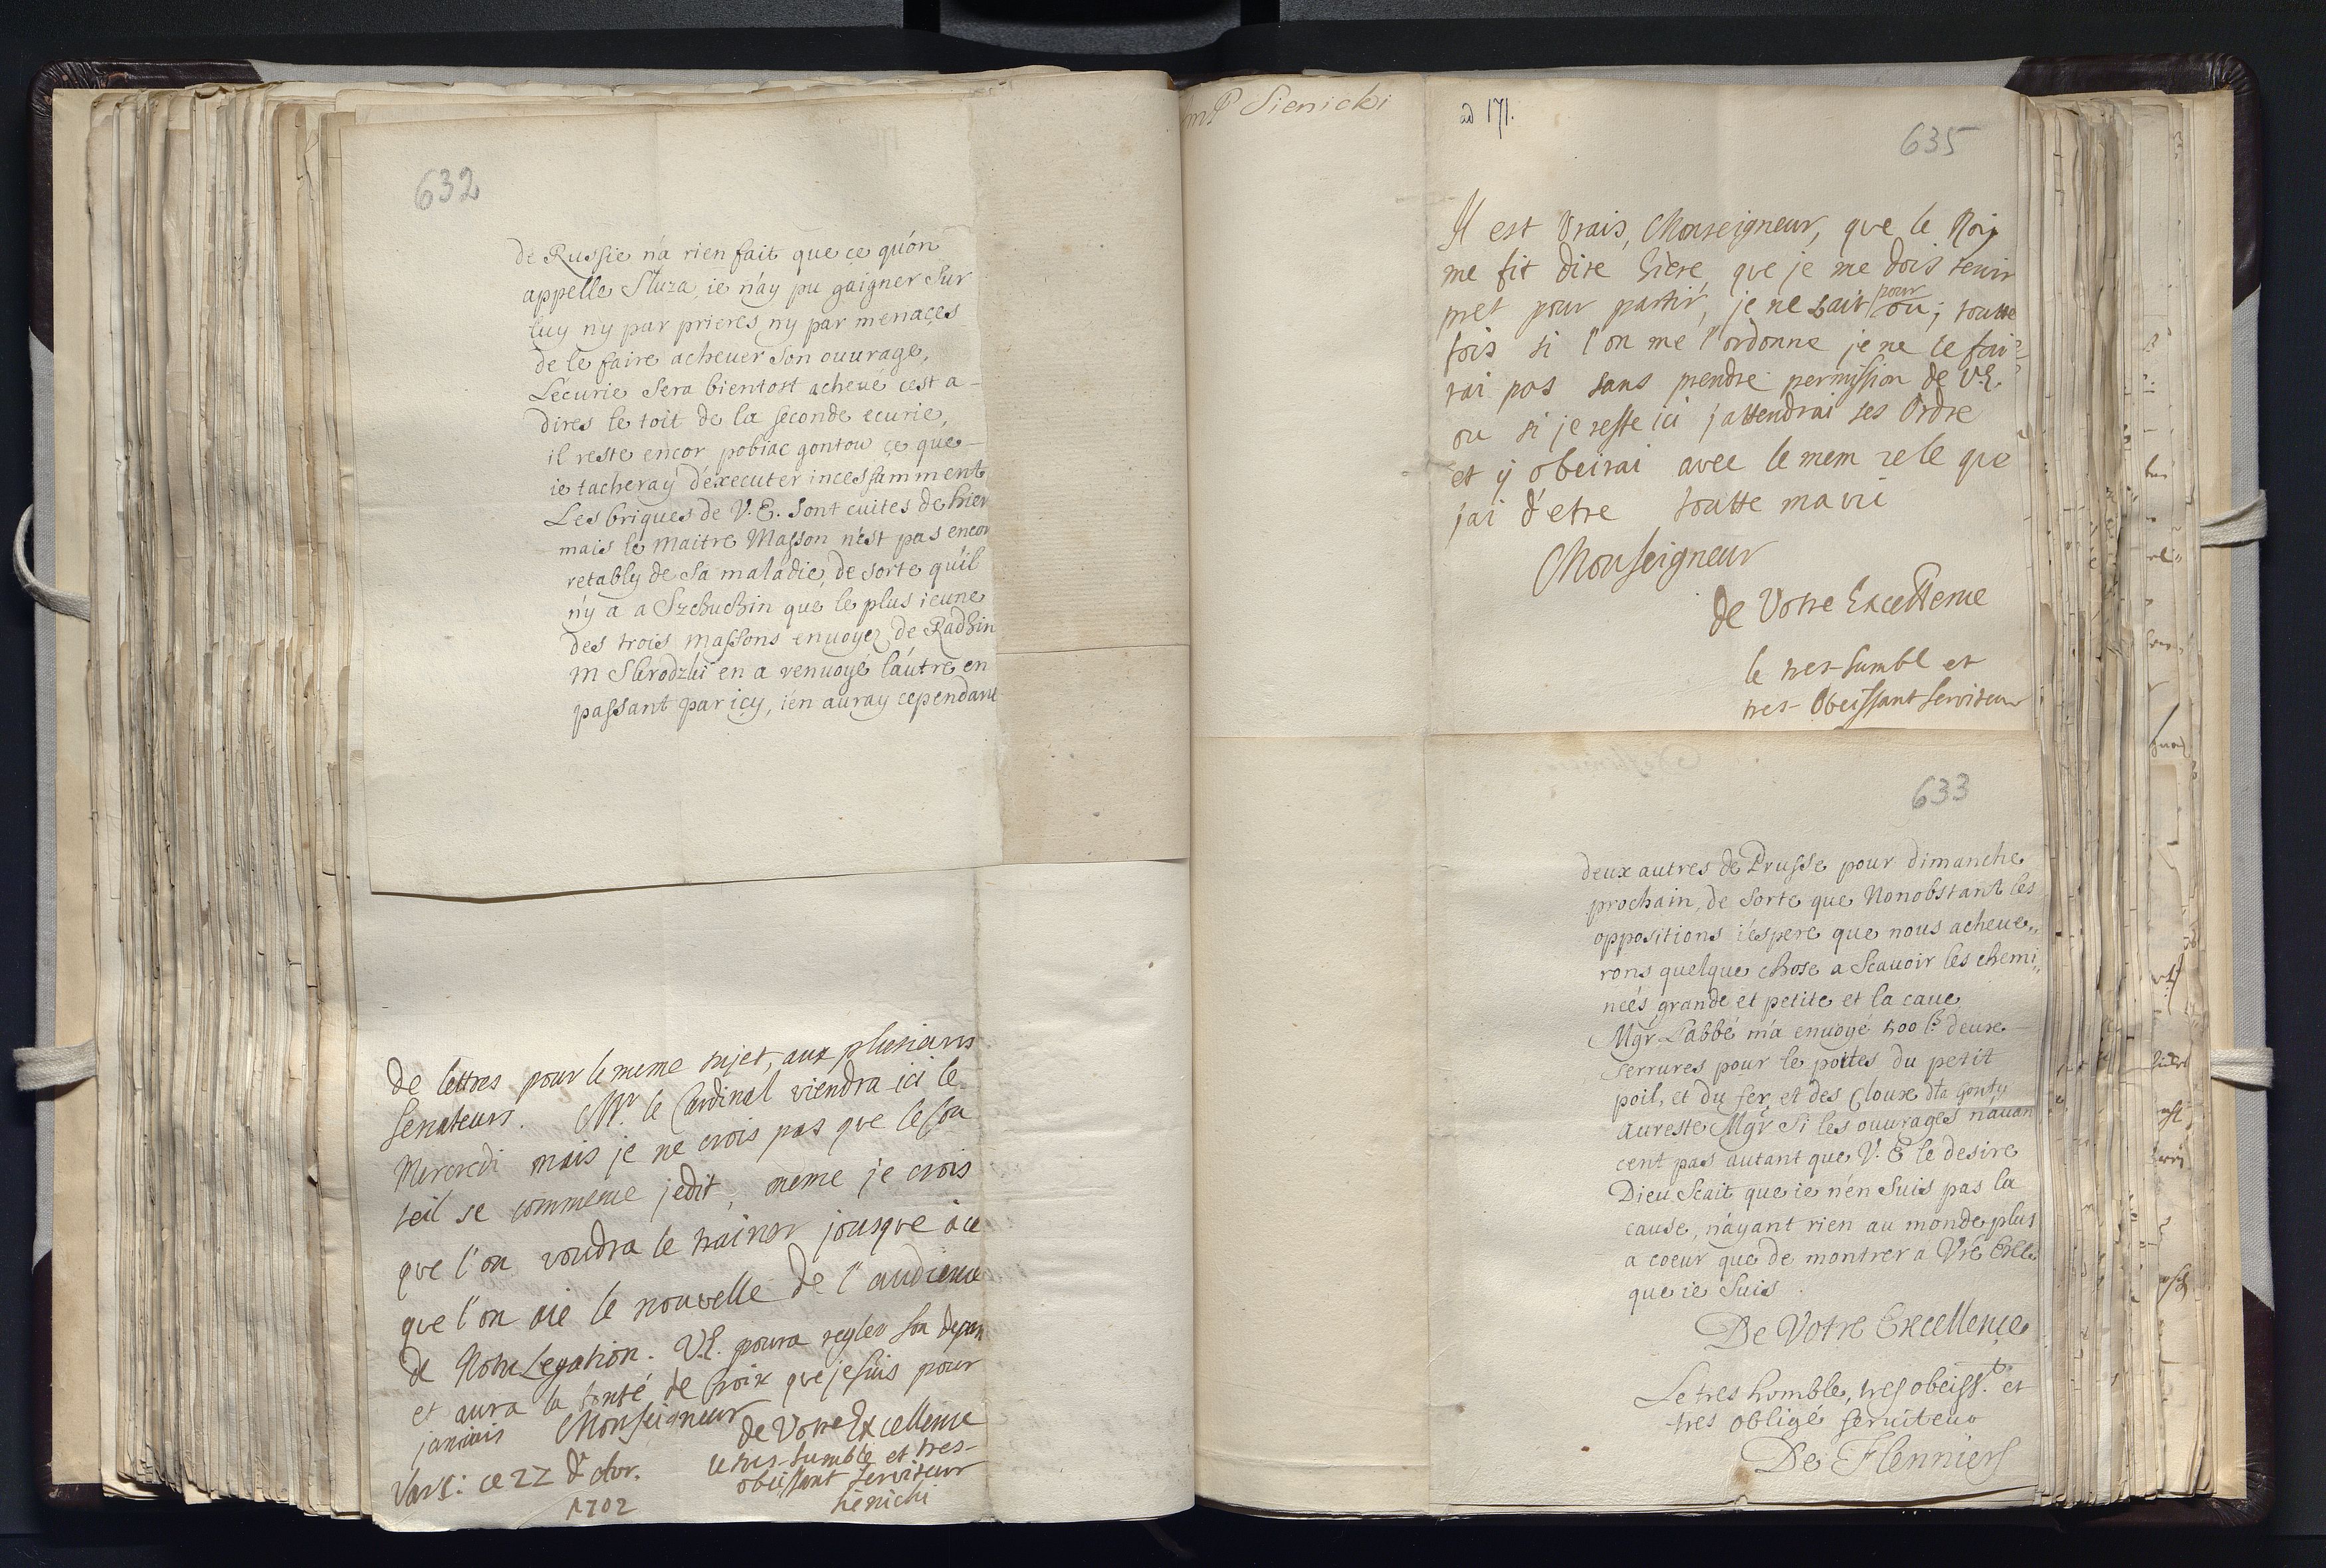 632
de Russie n'a rien fait que ce qu'on
appelle Sluza, ie n'ay pu gaigner sur
luy ny par prieres ny par menaces
de le faire acheuer son ouurage,
Lécurie sera bientost acheué cest a-
dires le toit de la seconde ecurie,
il reste encor pobiac gontow ce que
ie tacheray d'éxecuter incessamment
Les briques de V. E. sont cuites de hier
mais le maitre Masson n'est pas encor
retably de sa maladie, de sorte qu'il
n'y a a Szchuchin que le plus ieune
des trois massons enuoyez de Radhin
m Skrodzki en a renuoyé láutre en
passant par icy, i'en auray cependant
de lettres pour le meme sujet, aux plusieurs
senateurs. Mr. le Cardinal viendra ici le
Mercredi mais je ne crois pas que le con
seil se commence jedit, meme je crois
que l'on voudra le trainer jousque à ce
que l'on aie le nouvelle de l'audience
de Notre Legation. V.E. poura regler son depar
et aura la bonté de croix que je suis pour
jamais Monseigneur
de Votre Excellence
le tres-humble et tres-
obeissant serviteur
Sienicki
Vars: ce 22 d'
1702
Sienicki
ad 171.
635
Il est vrais, Monseigneur, que le Roi
me fit dire hiere que je me dois tenir
pret pour partir, je ne sait pour ou; toutte
fois si l'on me l'ordonne je ne le fai-
rai pas sans prendre permission de V.E.
ou si je reste ici j'attendrai ses Ordre
et y obeirai avec le mem zele que
jai d'etre toutte ma vie
Monseigneur
de Votre Excellence
le tres-humbl et
tres-Obeissant serviteur
633
deux autres de Prusse pour dimanche
prochain, de sorte que Nonobstant les
oppositions i'éspere que nous acheue,,
rons quelque chose a Scauoir les chemi,,
neés grande et petite et la caue
Mgr L'abbé m'a enuoyé deux
serrures pour le portes du petit
poil, et du fer et des cloux dla gonty
aureste Mgr Si les ouurages n'auan
cent pas autant que V. E le desire
Dieu scait que ie n'en suis pas la
cause, n'ayant rien au monde plus
a coeur que de montrer a Vre Exlle
que ie suis.
De Votre Excellence
Le tres humble, tres obeisst. et
tres obligé seruiteur
De Flenniers